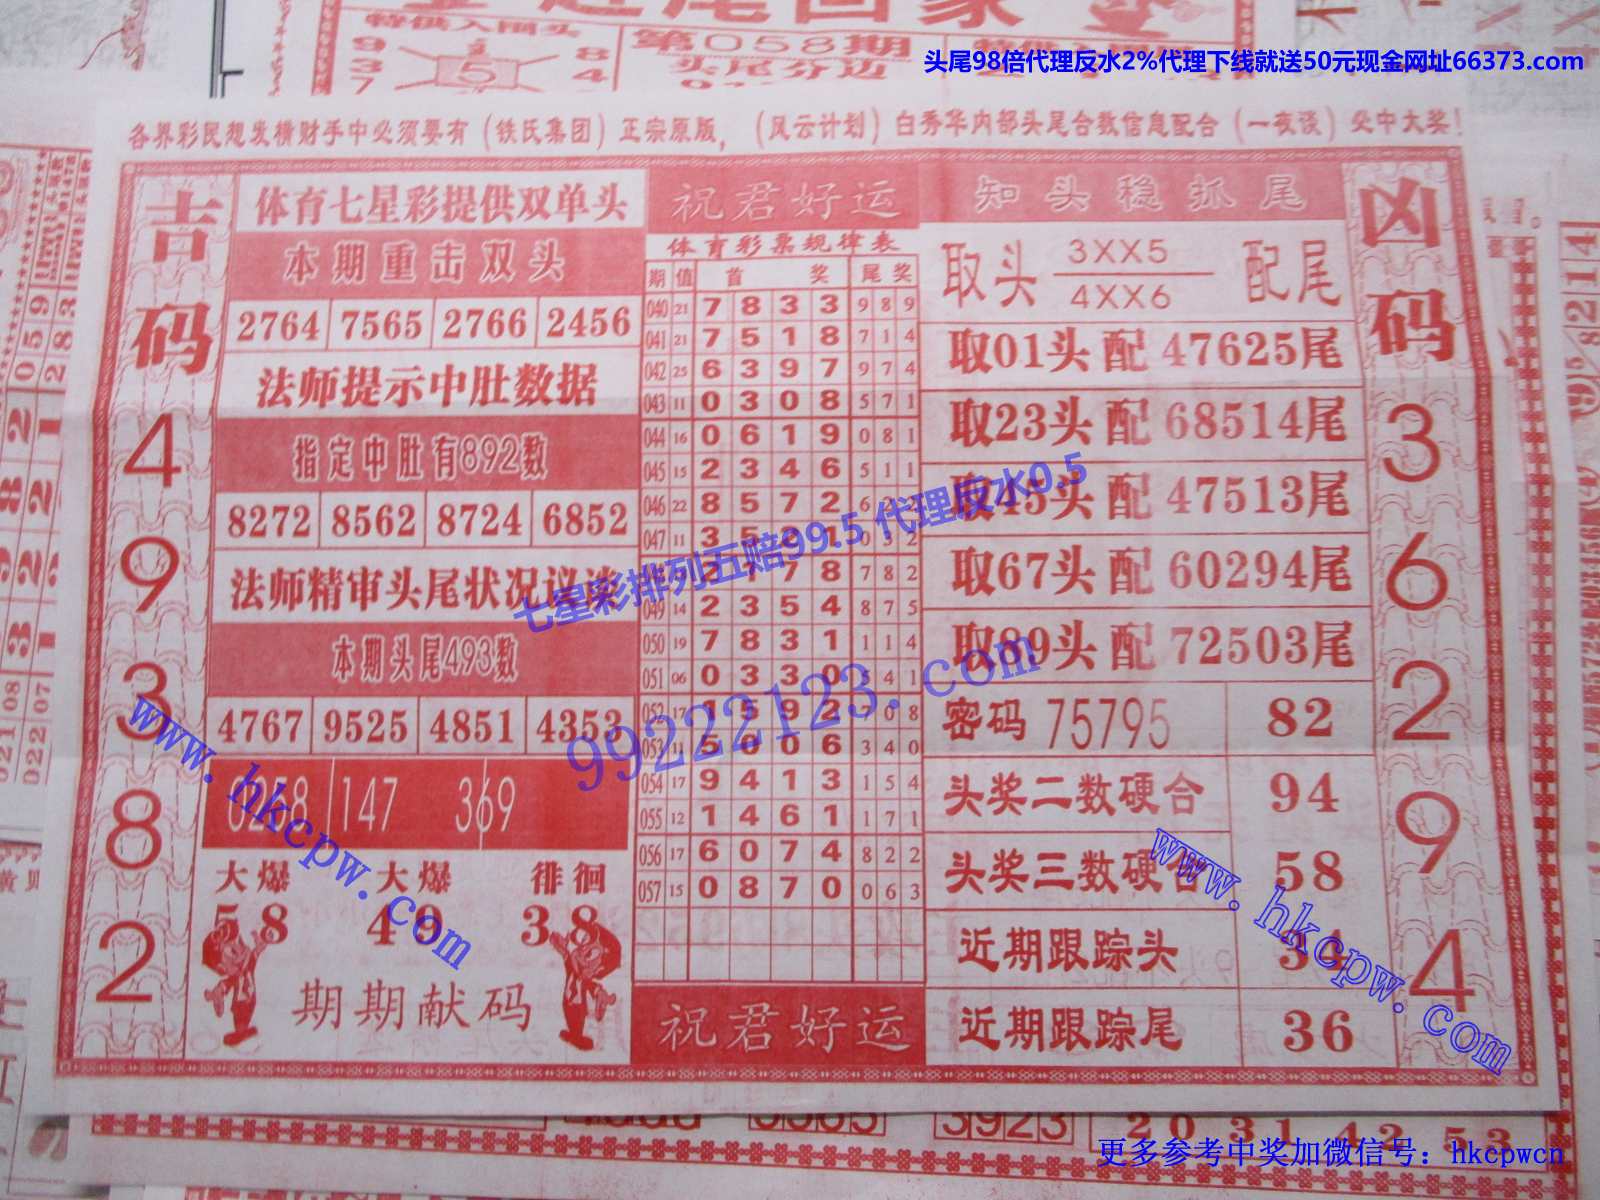 第058期
头尾分边
头尾98倍代理反水2%代理下线就送50元现金网址66373.com
各界彩民想发横财手中必须要有（铁氏集团）正宗原版，（风云计划）白秀华内部头尾合数信息配合（一夜谈）必中大奖！
吉码
4
9
3
8
2
体育七星彩提供双单头
本期重击双头
2764 7565 2766 2456
法师提示中肚数据
指定中肚有892数
8272 8562 8724 6852
法师精审头尾状况议谈
本期头尾493数
4767 9525 4851 4353
0258 147 369
大爆 大爆 徘徊
58 49 38
期期献码
祝君好运
体育彩票规律表
期 值 首 奖 尾 奖
040 21 7 8 3 3 9 8 9
041 21 7 5 1 8 7 1 4
042 25 6 3 9 7 9 7 4
043 11 0 3 0 8 5 7 1
044 16 0 6 1 9 0 8 1
045 15 2 3 4 6 5 1 1
046 22 8 5 7 2 6 2 2
047 11 3 5 2 1 0 3 2
2 1 7 8 7 8 2
049 14 2 3 5 4 8 7 5
050 19 7 8 3 1 1 1 4
051 06 0 3 3 0 5 4 1
052 17 1 5 9 2 7 0 8
053 11 5 0 0 6 3 4 0
054 17 9 4 1 3 1 5 4
055 12 1 4 6 1 1 7 1
056 17 6 0 7 4 8 2 2
057 15 0 8 7 0 0 6 3
祝君好运
知头稳抓尾
取头 3XX5 配尾
4XX6
取01头 配 47625尾
取23头 配 68514尾
取45头 配 47513尾
取67头 配 60294尾
取89头 配 72503尾
密码 75795 82
头奖二数硬合 94
头奖三数硬合 58
近期跟踪头 34
近期跟踪尾 36
凶码
3
6
2
9
4
七星彩排列五赔99.5 代理反水0.5
99222123.com
www.hkcpw.com
www.hkcpw.com
3923
20 31 42 53
更多参考中奖加微信号：hkcpwcn